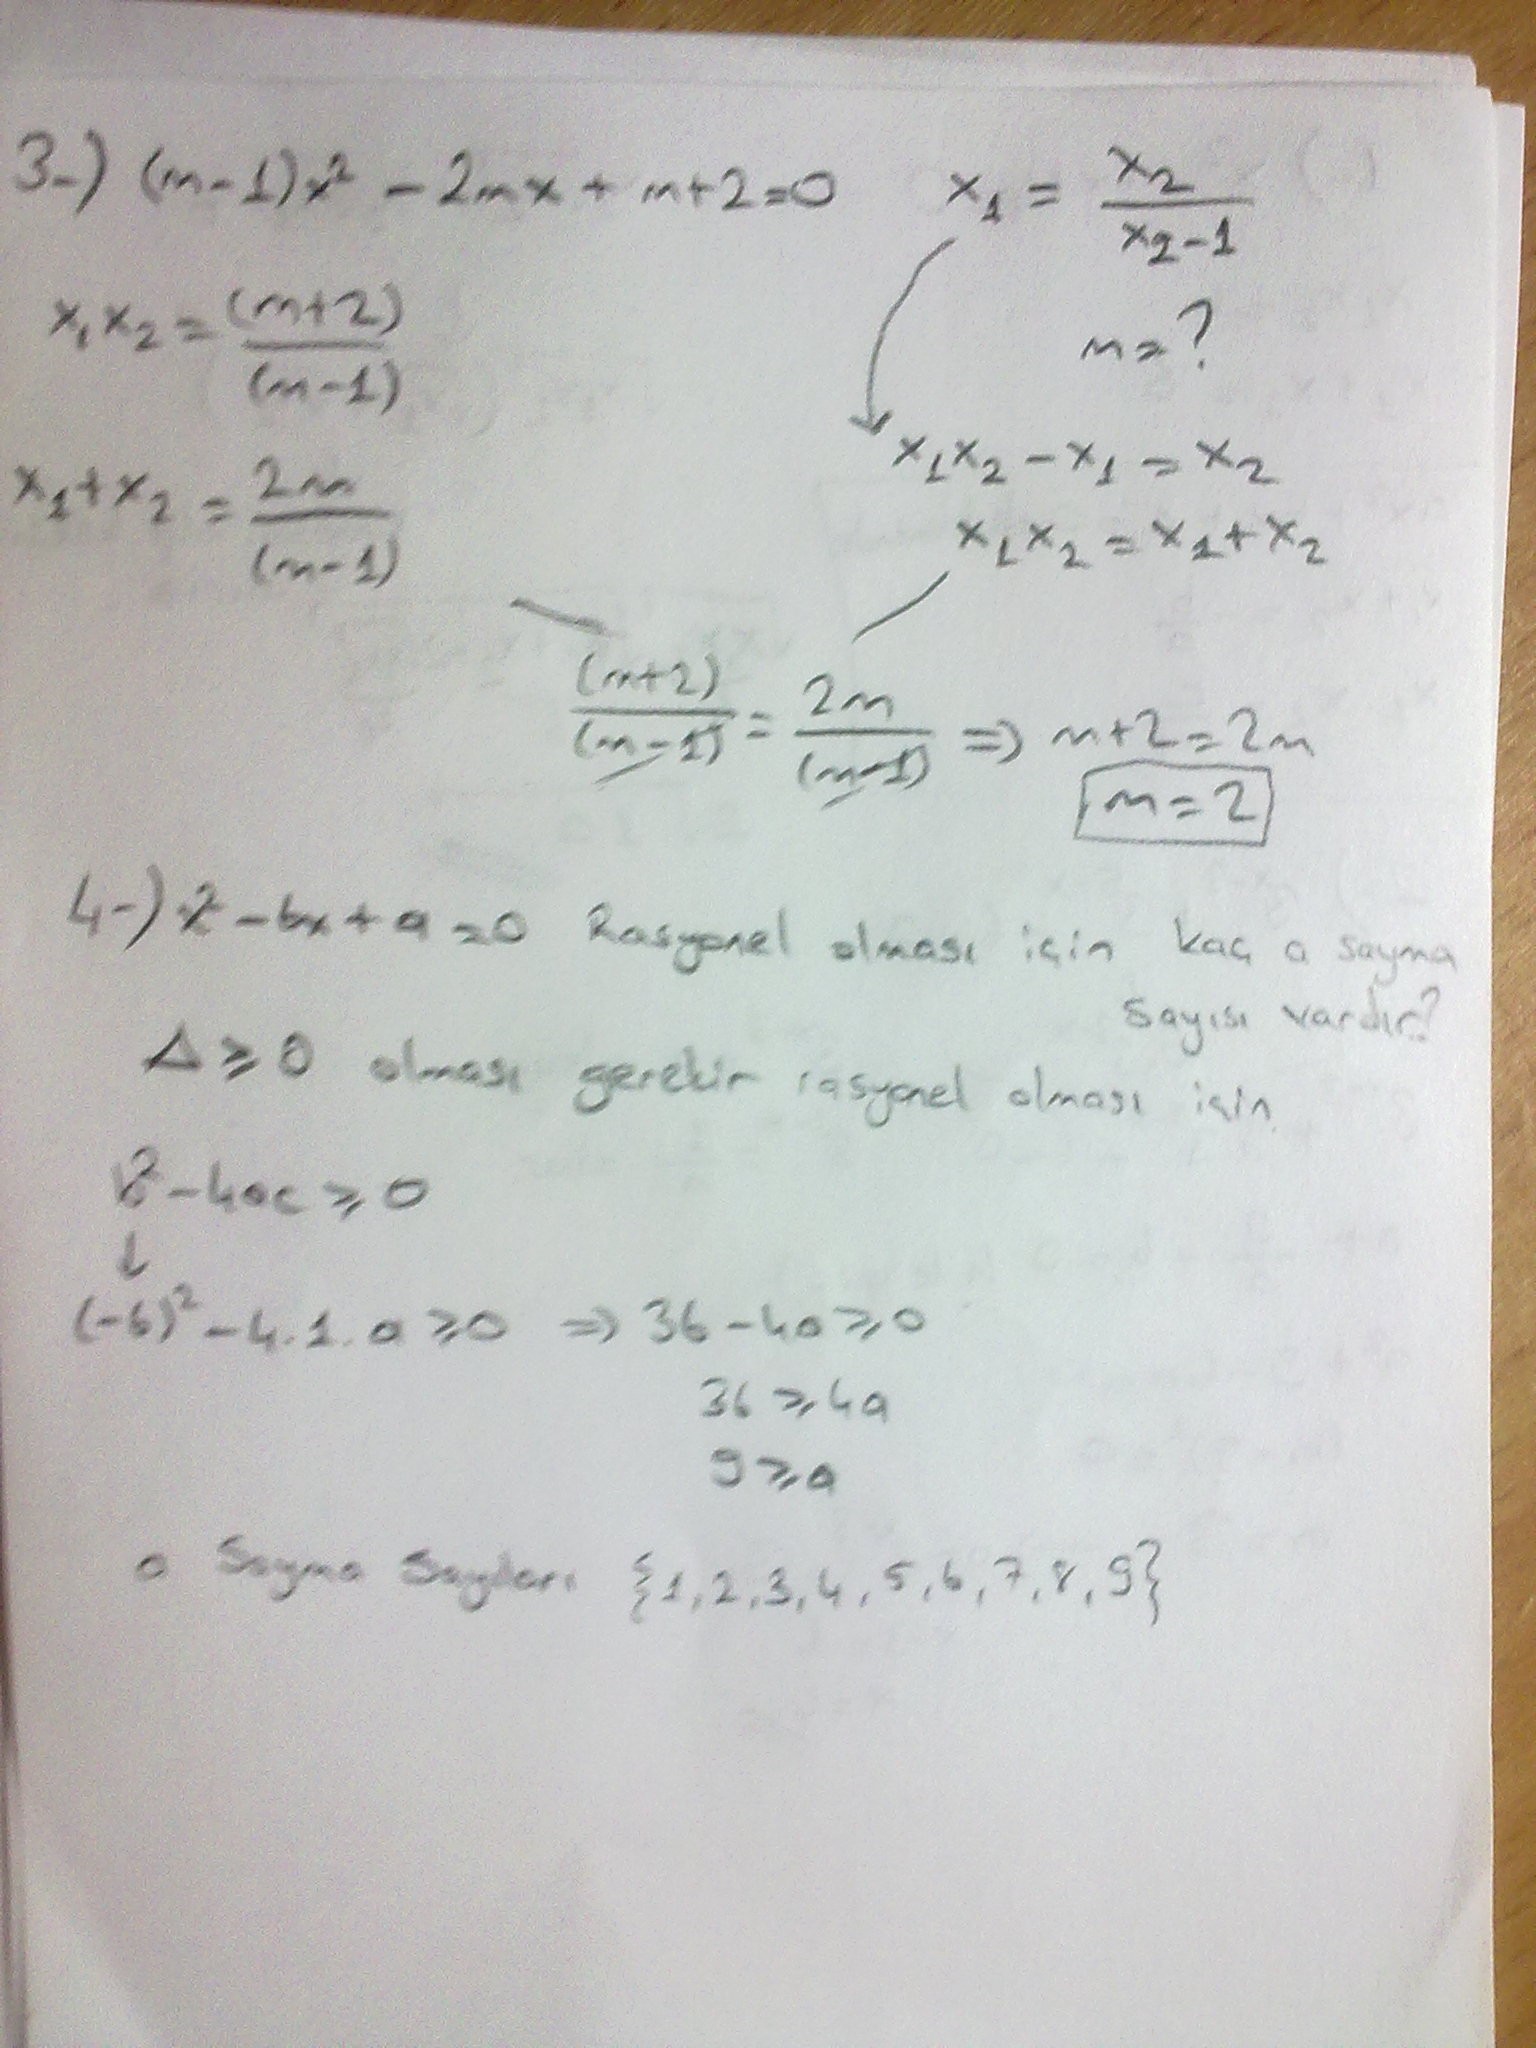 3-) (m-1)x² - 2mx + m+2=0 x₁ = x₂/(x₂-1)
m=?
x₁x₂ = (m+2)/(m-1)
x₁x₂ - x₁ = x₂
x₁+x₂ = 2m/(m-1)
x₁x₂ = x₁+x₂
(m+2)/(m-1) = 2m/(m-1) ⇒ m+2=2m
m=2
4-) x² - 6x + a = 0 Rasyonel olması için kaç a sayma
sayısı vardır?
Δ ≥ 0 olması gerekir rasyonel olması için.
b² - 4ac ≥ 0
↓
(-6)² - 4.1.a ≥ 0 ⇒ 36 - 4a ≥ 0
36 ≥ 4a
9 ≥ a
a Sayma Sayıları {1,2,3,4,5,6,7,8,9}